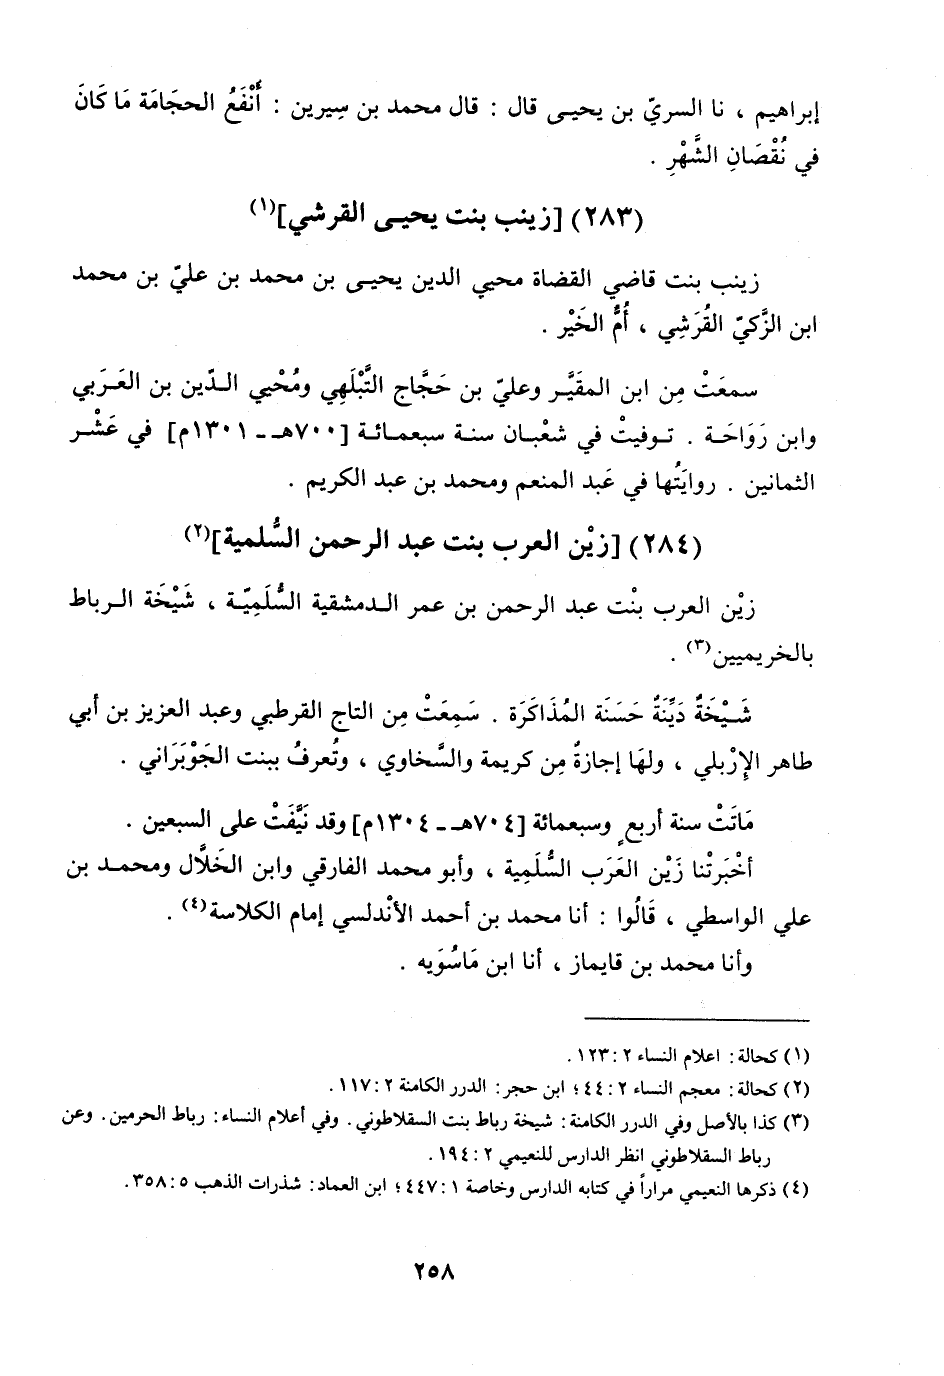 إبراهيم ، نا السريّ بن يحيـى قال : قال محمد بن سِيرين : أَنْفَعُ الحجَامَة مَا كَانَ
في نُقْصَانِ الشَّهْرِ .
(٢٨٣) [زينب بنت يحيـى القرشي](١)
زينب بنت قاضي القضاة محيي الدين يحيـى بن محمد بن عليّ بن محمد
ابن الزَّكيّ القُرَشِي ، أُمُّ الخَيْر .
سمعَتْ مِن ابن المقَيَّـر وعليّ بن حَجَّاج التَّبْلَهِي ومُحْيي الـدّين بن العَـرَبي
وابن رَوَاحَـة . تـوفيتْ في شعْبـان سنـة سبعمـائـة [٧٠٠هـ ـ ١٣٠١م] في عَشْـر
الثمانين . روايَتُها في عَبد المنعم ومحمد بن عبد الكريم .
(٢٨٤) [زيْن العرب بنت عبد الرحمن السُّلمية](٢)
زيْن العرب بنْت عبد الرحمن بن عمر الـدمشقية السُّلَمِيّـة ، شَيْخَة الـرباط
بالخريميين(٣) .
شَـيْخَةٌ دَيِّنَةٌ حَسَنَة المُذَاكَرَة . سَمِعَتْ مِن التاج القرطبي وعبد العزيز بن أبي
طاهر الإِرْبلي ، ولهَا إجازةٌ مِن كريمة والسَّخاوي ، وتُعرفُ ببنت الجَوْبَرَاني .
مَاتَتْ سنة أربعٍ وسبعمائة [٧٠٤هـ ـ ١٣٠٤م] وقد نَيَّفَتْ على السبعين .
أخْبَرتْنا زَيْن العَرَب السُّلَمِية ، وأبو محمد الفارقي وابن الخَلَّال ومحمـد بن
علي الواسطي ، قَالُوا : أنا محمد بن أحمد الأنْدلسي إمام الكلاسة(٤) .
وأنا محمد بن قايماز ، أنا ابن مَاسُوَيه .
(١) كحالة: اعلام النساء ٢ : ١٢٣ .
(٢) كحالة: معجم النساء ٢ : ٤٤؛ ابن حجر: الدرر الكامنة ٢ : ١١٧ .
(٣) كذا بالأصل وفي الدرر الكامنة: شيخة رباط بنت السقلاطوني. وفي أعلام النساء: رباط الحرمين. وعن
رباط السقلاطوني انظر الدارس للنعيمي ٢ : ١٩٤ .
(٤) ذكرها النعيمي مراراً في كتابه الدارس وخاصة ١ : ٤٤٧؛ ابن العماد: شذرات الذهب ٥ : ٣٥٨.
٢٥٨